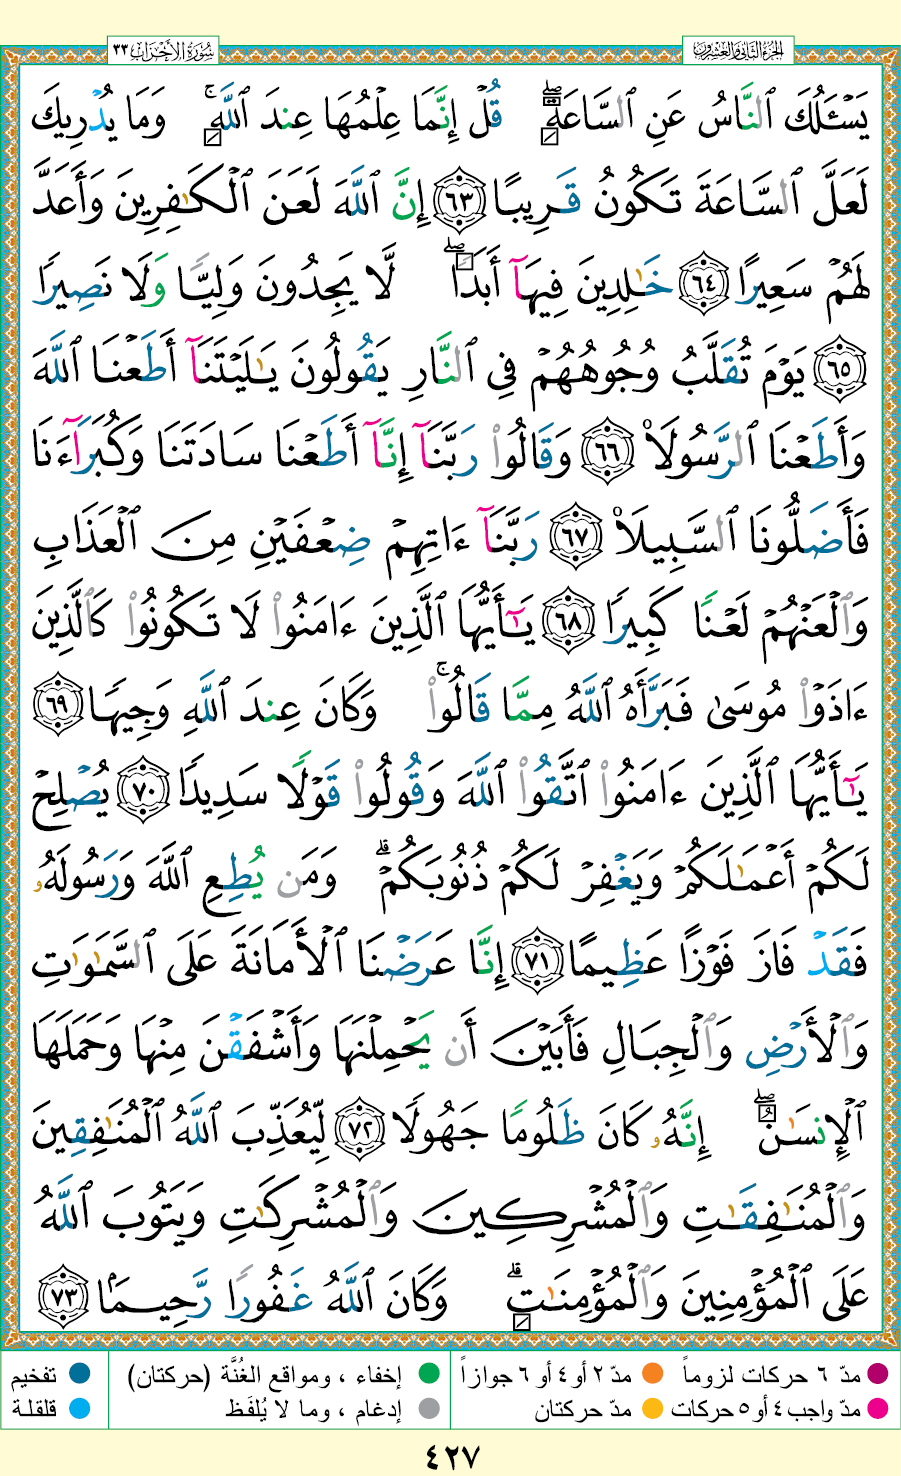 الجزء الثاني والعشرون
سُورَةُ الأَحْزَاب ٣٣
يَسْـَٔلُكَ ٱلنَّاسُ عَنِ ٱلسَّاعَةِۖ قُلْ إِنَّمَا عِلْمُهَا عِندَ ٱللَّهِۚ وَمَا يُدْرِيكَ
لَعَلَّ ٱلسَّاعَةَ تَكُونُ قَرِيبًا ٦٣ إِنَّ ٱللَّهَ لَعَنَ ٱلْكَٰفِرِينَ وَأَعَدَّ
لَهُمْ سَعِيرًا ٦٤ خَٰلِدِينَ فِيهَآ أَبَدًاۖ لَّا يَجِدُونَ وَلِيًّا وَلَا نَصِيرًا
٦٥ يَوْمَ تُقَلَّبُ وُجُوهُهُمْ فِى ٱلنَّارِ يَقُولُونَ يَٰلَيْتَنَآ أَطَعْنَا ٱللَّهَ
وَأَطَعْنَا ٱلرَّسُولَا۠ ٦٦ وَقَالُوا۟ رَبَّنَآ إِنَّآ أَطَعْنَا سَادَتَنَا وَكُبَرَآءَنَا
فَأَضَلُّونَا ٱلسَّبِيلَا۠ ٦٧ رَبَّنَآ ءَاتِهِمْ ضِعْفَيْنِ مِنَ ٱلْعَذَابِ
وَٱلْعَنْهُمْ لَعْنًا كَبِيرًا ٦٨ يَٰٓأَيُّهَا ٱلَّذِينَ ءَامَنُوا۟ لَا تَكُونُوا۟ كَٱلَّذِينَ
ءَاذَوْا۟ مُوسَىٰ فَبَرَّأَهُ ٱللَّهُ مِمَّا قَالُوا۟ۚ وَكَانَ عِندَ ٱللَّهِ وَجِيهًا ٦٩
يَٰٓأَيُّهَا ٱلَّذِينَ ءَامَنُوا۟ ٱتَّقُوا۟ ٱللَّهَ وَقُولُوا۟ قَوْلًا سَدِيدًا ٧٠ يُصْلِحْ
لَكُمْ أَعْمَٰلَكُمْ وَيَغْفِرْ لَكُمْ ذُنُوبَكُمْۗ وَمَن يُطِعِ ٱللَّهَ وَرَسُولَهُۥ
فَقَدْ فَازَ فَوْزًا عَظِيمًا ٧١ إِنَّا عَرَضْنَا ٱلْأَمَانَةَ عَلَى ٱلسَّمَٰوَٰتِ
وَٱلْأَرْضِ وَٱلْجِبَالِ فَأَبَيْنَ أَن يَحْمِلْنَهَا وَأَشْفَقْنَ مِنْهَا وَحَمَلَهَا
ٱلْإِنسَٰنُۖ إِنَّهُۥ كَانَ ظَلُومًا جَهُولًا ٧٢ لِّيُعَذِّبَ ٱللَّهُ ٱلْمُنَٰفِقِينَ
وَٱلْمُنَٰفِقَٰتِ وَٱلْمُشْرِكِينَ وَٱلْمُشْرِكَٰتِ وَيَتُوبَ ٱللَّهُ
عَلَى ٱلْمُؤْمِنِينَ وَٱلْمُؤْمِنَٰتِۗ وَكَانَ ٱللَّهُ غَفُورًا رَّحِيمًۢا ٧٣
مدّ ٦ حركات لزوماً مدّ ٢ أو ٤ أو ٦ جوازاً إخفاء ، ومواقع الغُنَّة (حركتان) تفخيم
مدّ واجب ٤ أو ٥ حركات مدّ حركتان إدغام ، وما لا يُلفَظ قلقلة
٤٢٧